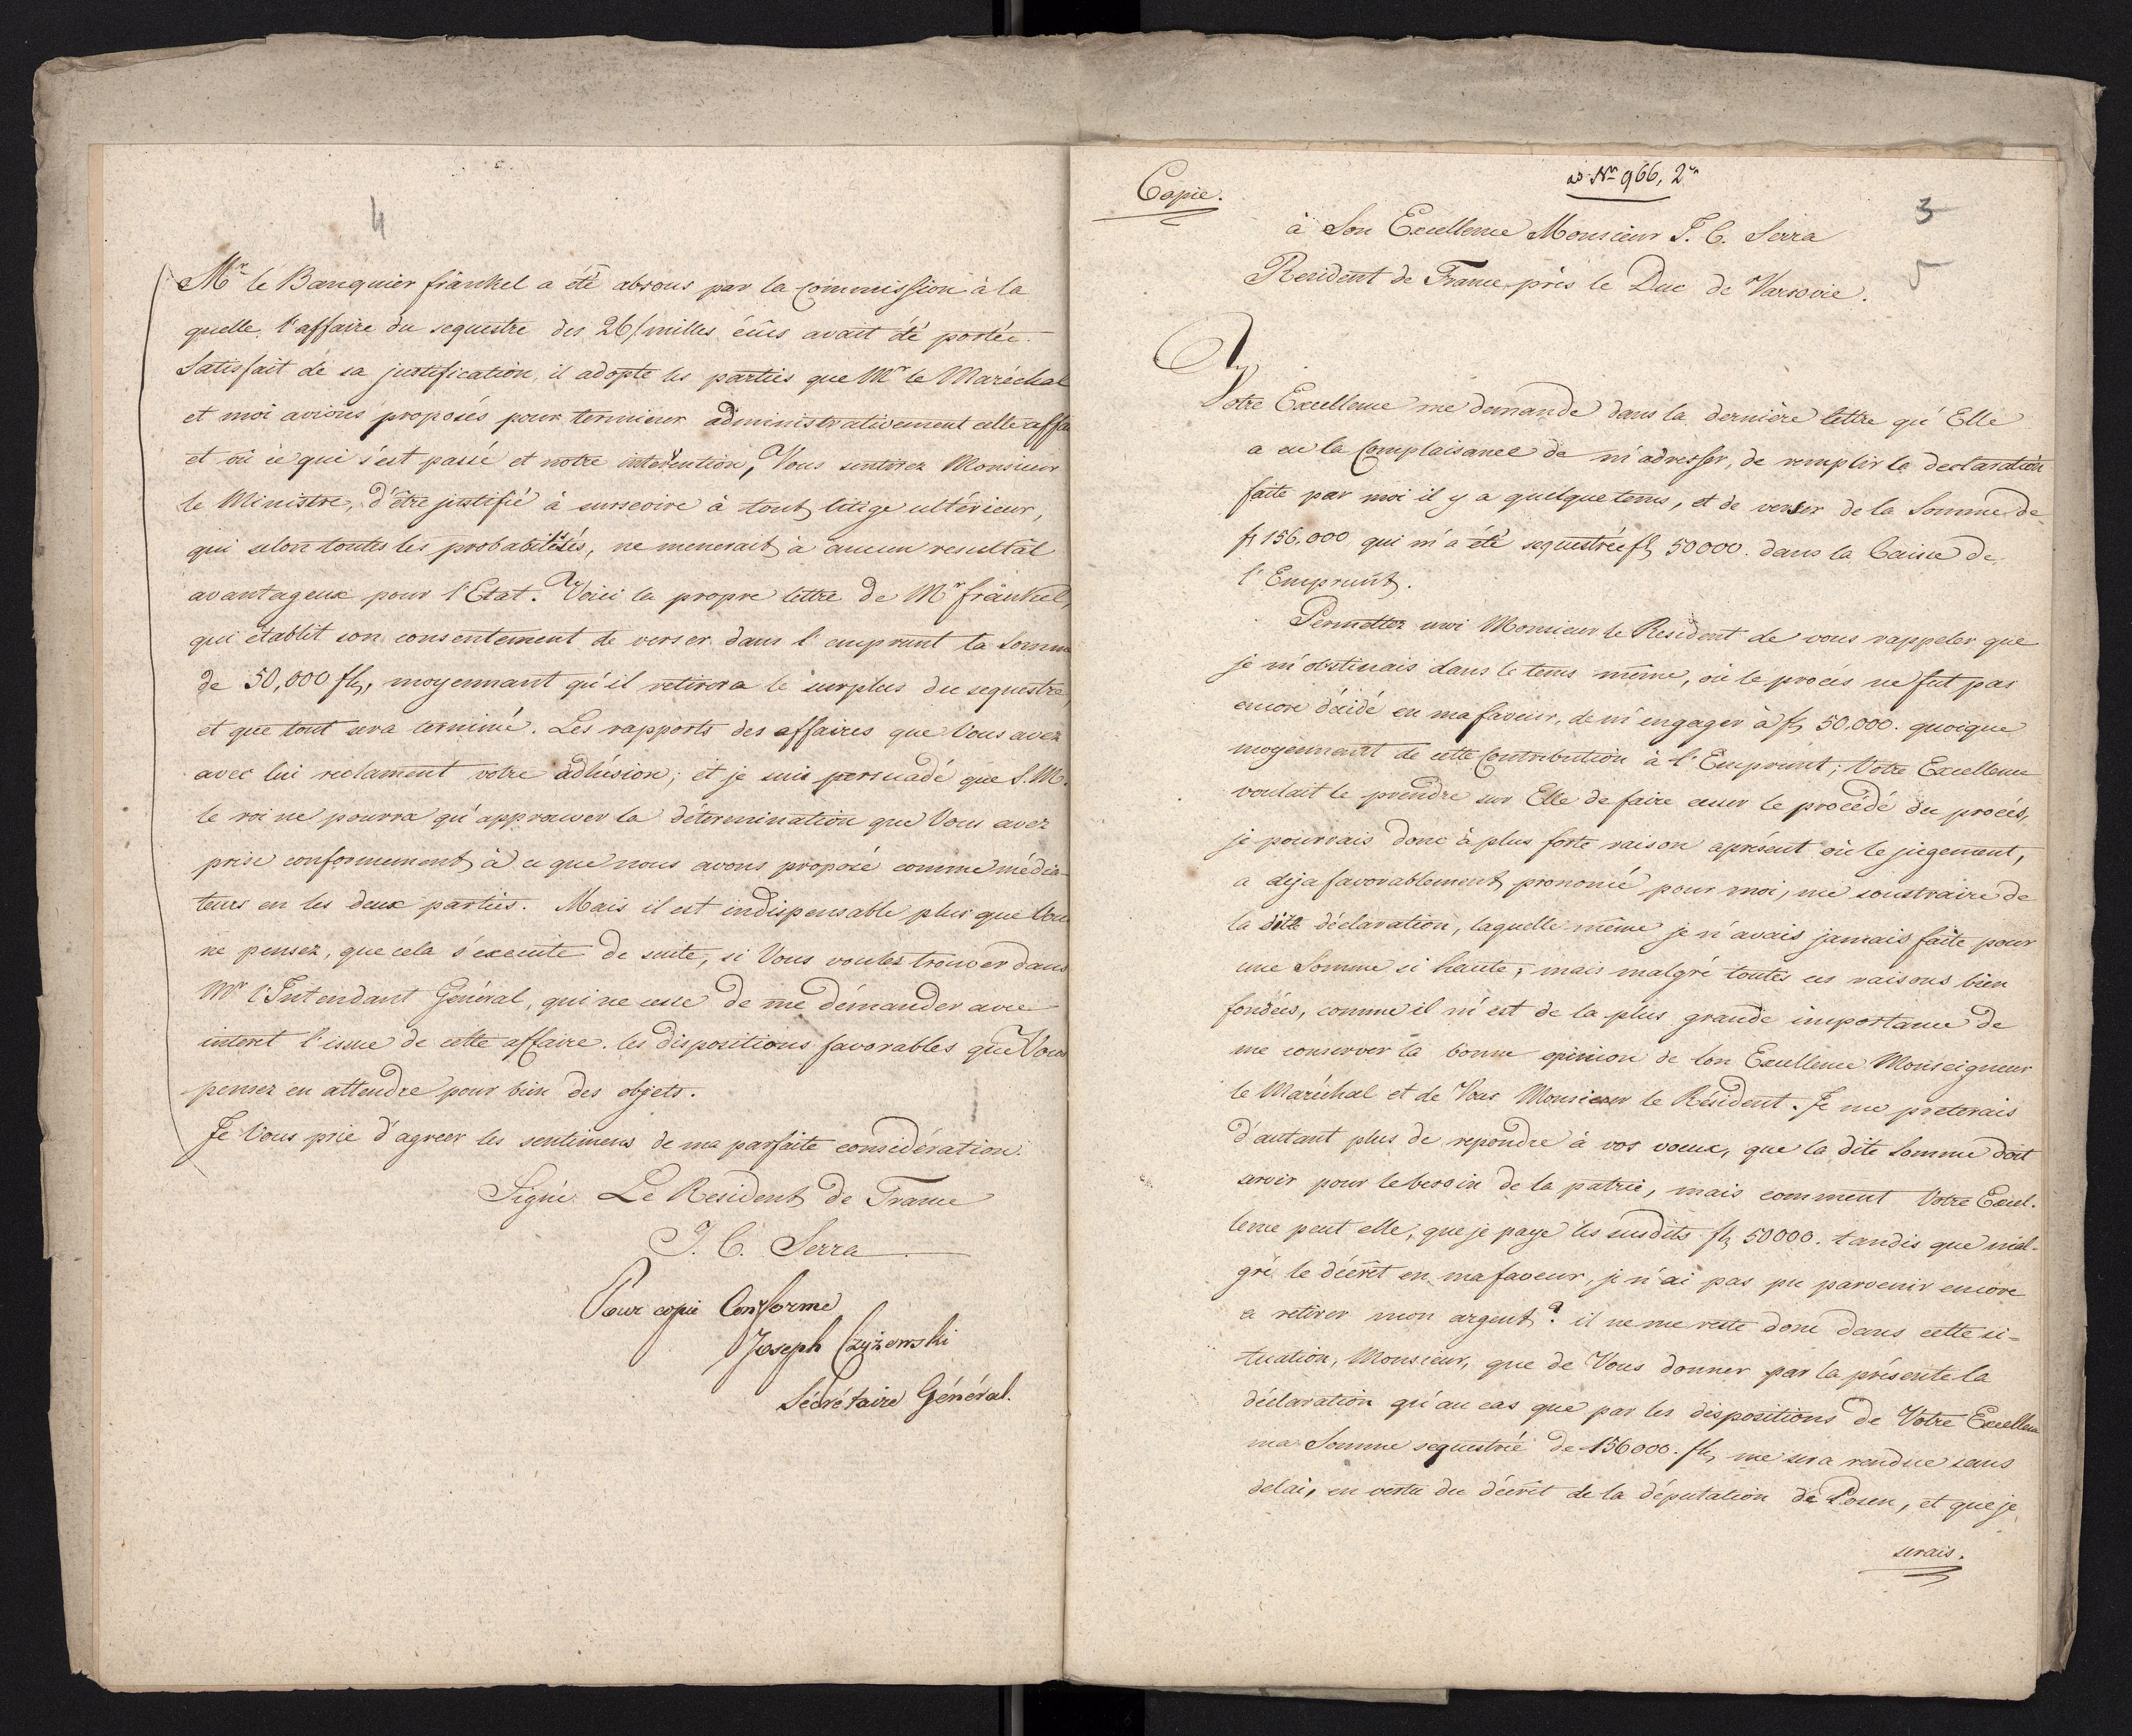 4
Mr le Banquier fränkel a été absous par la Commission à la
quelle l'affaire du sequestre des 26/milles écûs avait été portée.
Satisfait de sa justification, il adopte les parties que Mr le Maréchal
et moi avions proposés pour terminer administrativement cette affa
et où ce qui s'est passé et notre intervention, Vous sentirez Monsieur
le Ministre, d'être justifié à surseoire à tout litige ultérieur,
qui selon toutes les probabilités, ne menerait à aucun resultat
avantageux pour l'Etat. Voici la propre lettre de Mr fränkel,
qui établit son consentement de verser dans l'emprunt la Somme
de 50,000 fl, moyennant qu'il retirera le surplus du sequestre,
et que tout sera terminé. Les rapports des affaires que Vous avez
avec lui reclament votre adhésion; et je suis persuadé que S. M.
le roi ne pourra qu'approuver la détermination que Vous avez
prise conformement à ce que nous avons proposé comme média-
teurs en les deux parties. Mais il est indispensable plus que Vous
ne pensez, que cela s'execute de suite, si Vous voulez trouver dans
Mr l'Intendant Général, qui ne cesse de me démander avec
interet l'issue de cette affaire. les dispositions favorables que Vous
pensez en attendre pour bien des objets.
Je Vous prie d'agreer les sentimens de ma parfaite considération.
Signé Le Resident de France
J. C. Serra
Pour copie Conforme
Joseph Czyżewski
Sécrétaire Général.
Copie.
ad Nr 966, 2
3
5
à Son Excellence Monsieur J. C. Serra
Resident de France près le Duc de Varsovie.
Votre Excellence me demande dans la dernière lettre qu'Elle
a eu la Complaisance de m'adresser, de remplir la declaration
faite par moi il y a quelque tems, et de verser de la Somme de
fl 156.000 qui m'a été sequestrée fl 50000. dans la Caisse de
l'Emprunt.
Permettez moi Monsieur le Resident de vous rappeler que
je m'obstinais dans le tems même, où le procès ne fut pas
encore décidé en ma faveur, de m'engager à fl 50.000. quoique
moyennant de cette Contribution à l'Emprunt; Votre Excellence
voulait le prendre sur Elle de faire cesser le procédé du procès,
je pourrais donc à plus forte raison aprésent où le jugement,
a deja favorablement prononcé pour moi, me soustraire de
la dite déclaration, laquelle même je n'avais jamais faite pour
une Somme si haute; mais malgré toutes ces raisons bien
fondées, comme il m'est de la plus grande importance de
me conserver la bonne opinion de Son Excellence Monseigneur
le Maréchal et de Vous Monsieur le Résident. Je me preterais
d'autant plus de repondre à vos voeux, que la dite Somme doit
servir pour le besoin de la patrie, mais comment Votre Excel-
lence peut elle, que je paye les susdits fl 50000. tandis que mal-
gré le décrêt en ma faveur, je n'ai pas pu parvenir encore
a retirer mon argent? il ne me reste donc dans cette si-
tuation, Monsieur, que de Vous donner par la présente la
déclaration qu'au cas que par les dispositions de Votre Excellence
ma Somme sequestrée de 156000. fl, me sera rendue sans
delai, en vertu du décrêt de la députation de Posen, et que je
serais.